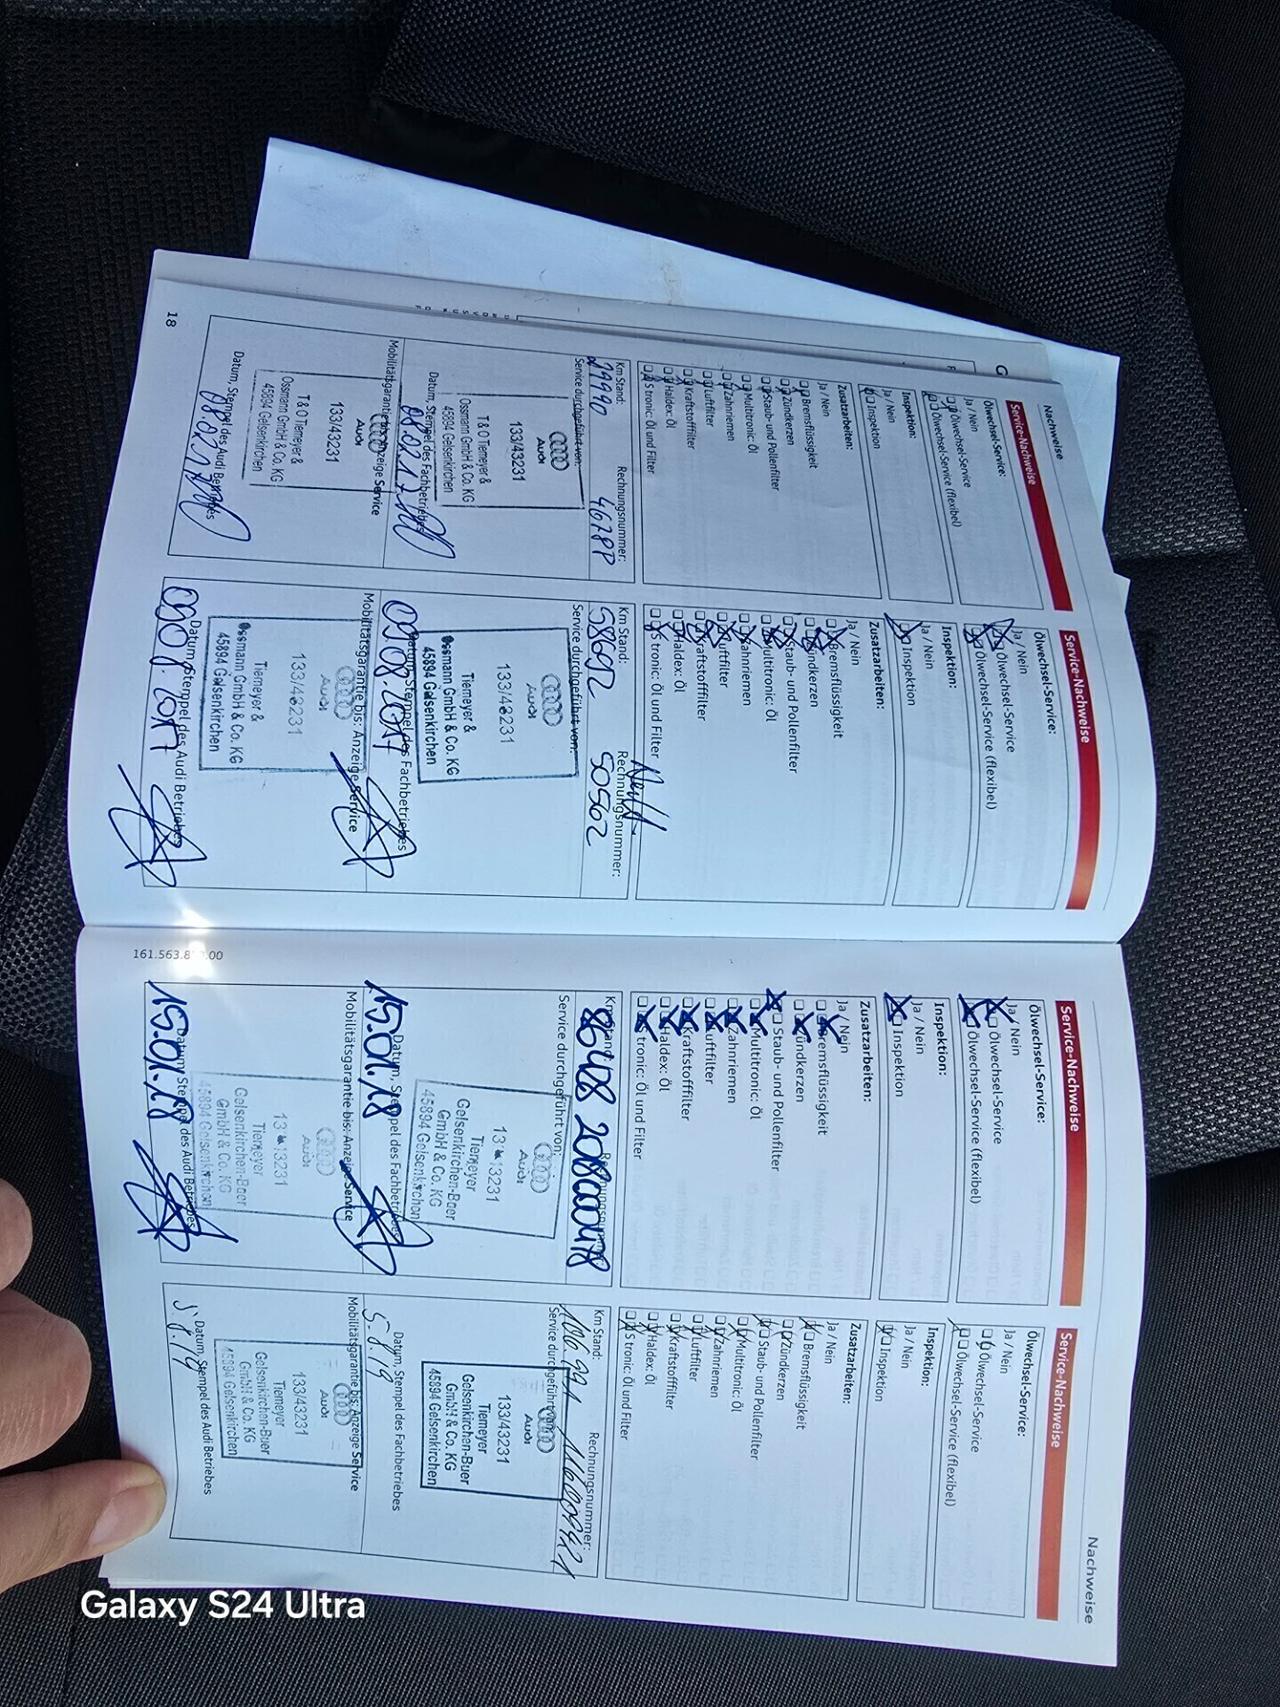 Nachweise
Service-Nachweise
Ölwechsel-Service:
Ja / Nein
Ölwechsel-Service
Ölwechsel-Service (flexibel)
Inspektion:
Ja / Nein
Inspektion
Zusatzarbeiten:
Ja / Nein
Bremsflüssigkeit
Zündkerzen
Staub- und Pollenfilter
Multitronic: Öl
Zahnriemen
Luftfilter
Kraftstofffilter
Haldex: Öl
S tronic: Öl und Filter
Km Stand: Rechnungsnummer:
Service durchgeführt von:
Audi
133/43231
T & O Tiemeyer &
Ossmann GmbH & Co. KG
45894 Gelsenkirchen
Datum, Stempel des Fachbetriebes
Mobilitätsgarantie bis: Anzeige Service
Audi
133/43231
T & O Tiemeyer &
Ossmann GmbH & Co. KG
45894 Gelsenkirchen
Datum, Stempel des Audi Betriebes
18
Service-Nachweise
Ölwechsel-Service:
Ja / Nein
Ölwechsel-Service
Ölwechsel-Service (flexibel)
Inspektion:
Ja / Nein
Inspektion
Zusatzarbeiten:
Ja / Nein
Bremsflüssigkeit
Zündkerzen
Staub- und Pollenfilter
Multitronic: Öl
Zahnriemen
Luftfilter
Kraftstofffilter
Haldex: Öl
S tronic: Öl und Filter
Km Stand: Rechnungsnummer:
58692 50562
Service durchgeführt von:
Audi
133/43231
Tiemeyer &
Ossmann GmbH & Co. KG
45894 Gelsenkirchen
Datum, Stempel des Fachbetriebes
Mobilitätsgarantie bis: Anzeige Service
Audi
133/43231
Tiemeyer &
Ossmann GmbH & Co. KG
45894 Gelsenkirchen
Datum, Stempel des Audi Betriebes
Service-Nachweise
Ölwechsel-Service:
Ja / Nein
Ölwechsel-Service
Ölwechsel-Service (flexibel)
Inspektion:
Ja / Nein
Inspektion
Zusatzarbeiten:
Ja / Nein
Bremsflüssigkeit
Zündkerzen
Staub- und Pollenfilter
Multitronic: Öl
Zahnriemen
Luftfilter
Kraftstofffilter
Haldex: Öl
S tronic: Öl und Filter
Service durchgeführt von:
Audi
Tiemeyer
Gelsenkirchen-Buer
GmbH & Co. KG
45894 Gelsenkirchen
15.01.18
Datum, Stempel des Fachbetriebes
Mobilitätsgarantie bis: Anzeige Service
Audi
Tiemeyer
Gelsenkirchen-Buer
GmbH & Co. KG
45894 Gelsenkirchen
15.01.18
Datum, Stempel des Audi Betriebes
Nachweise
Service-Nachweise
Ölwechsel-Service:
Ja / Nein
Ölwechsel-Service
Ölwechsel-Service (flexibel)
Inspektion:
Ja / Nein
Inspektion
Zusatzarbeiten:
Ja / Nein
Bremsflüssigkeit
Zündkerzen
Staub- und Pollenfilter
Multitronic: Öl
Zahnriemen
Luftfilter
Kraftstofffilter
Haldex: Öl
S tronic: Öl und Filter
Km Stand: Rechnungsnummer:
Service durchgeführt von:
Audi
133/43231
Tiemeyer
Gelsenkirchen-Buer
GmbH & Co. KG
45894 Gelsenkirchen
5.8.19
Datum, Stempel des Fachbetriebes
Mobilitätsgarantie bis: Anzeige Service
Audi
133/43231
Tiemeyer
Gelsenkirchen-Buer
GmbH & Co. KG
45894 Gelsenkirchen
5.8.19
Datum, Stempel des Audi Betriebes
Galaxy S24 Ultra